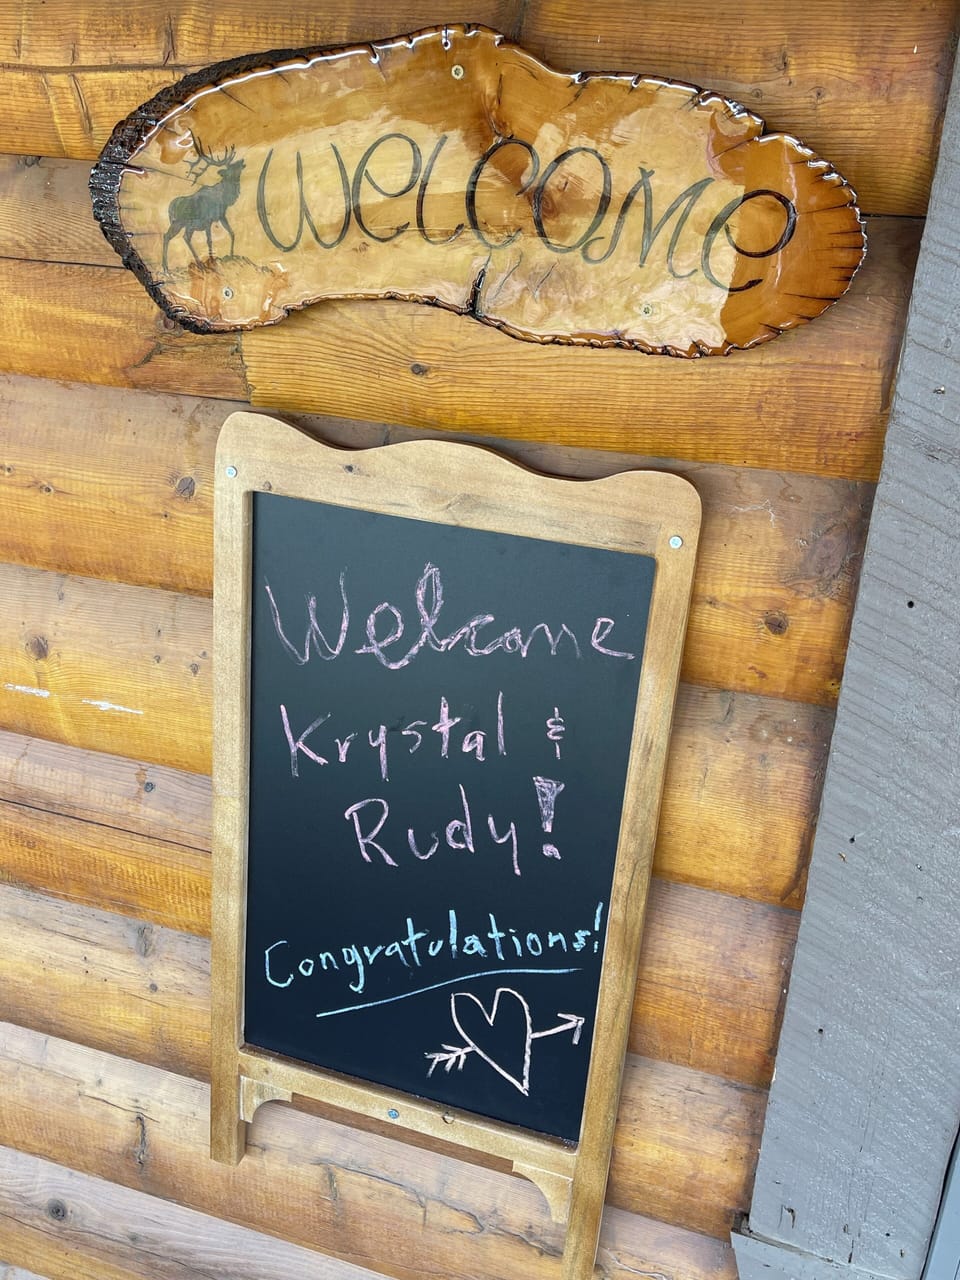 Welcome
Welcome
Krystal &
Rudy!
Congratulations!